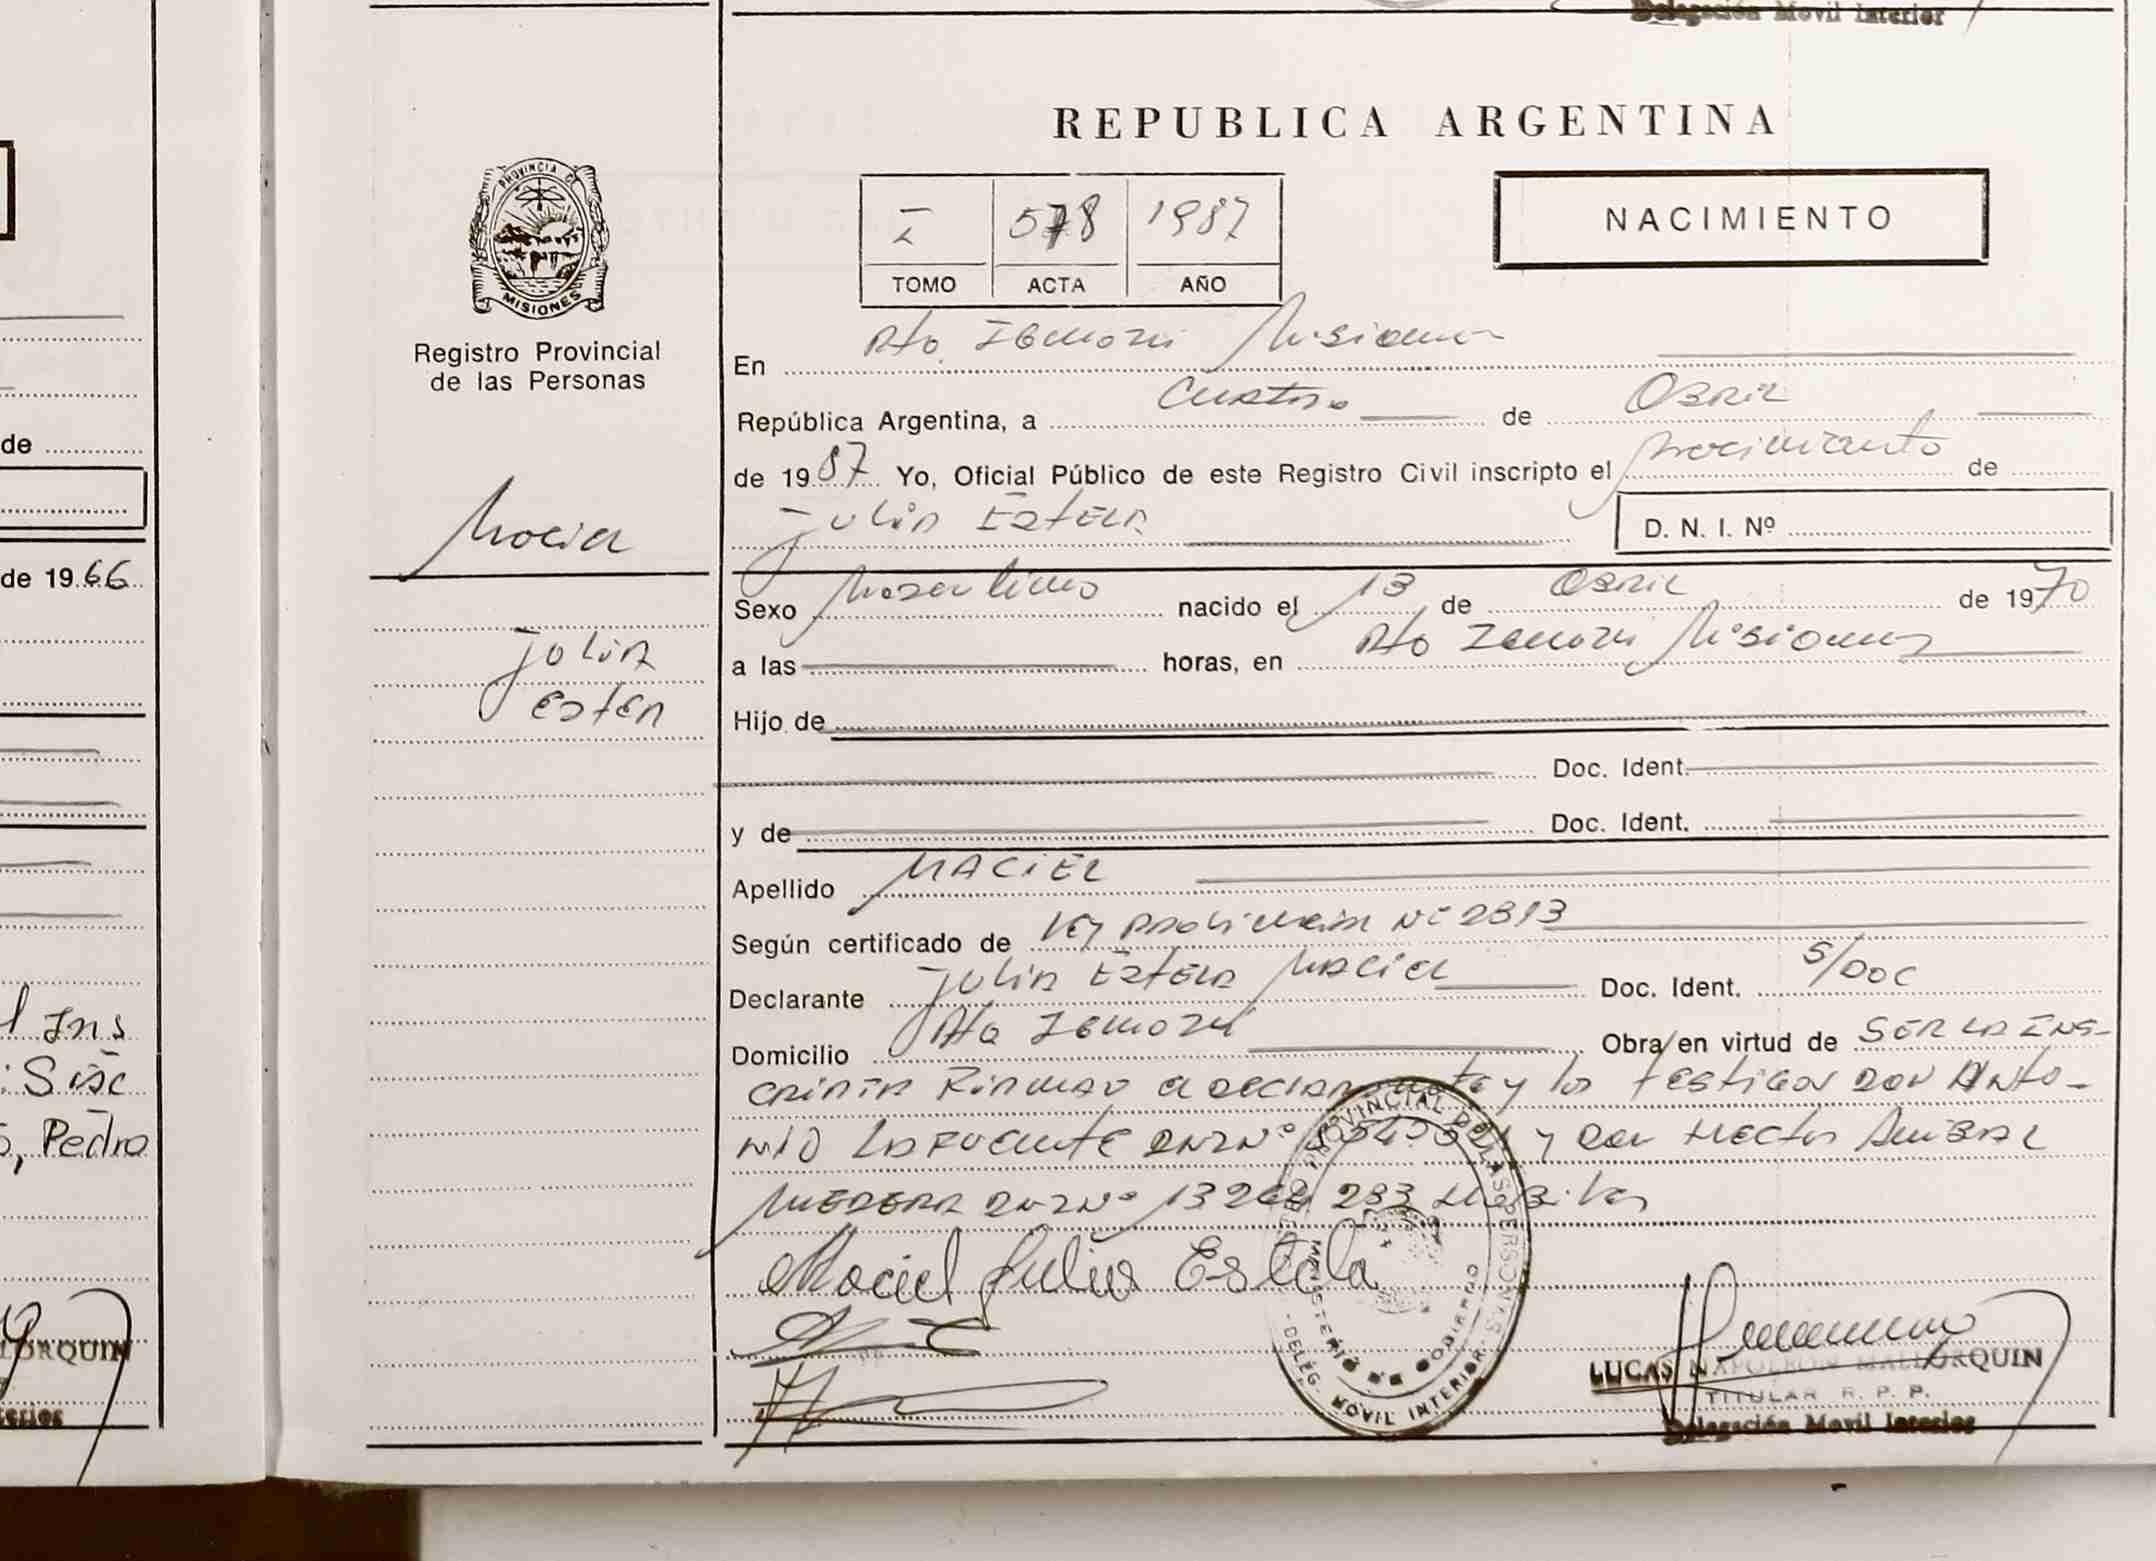 Delegación Movil Interior
REPUBLICA ARGENTINA
PROVINCIA DE
MISIONES
Registro Provincial
de las Personas
I 578 1987
TOMO ACTA AÑO
NACIMIENTO
En Pto. Misiones
República Argentina, a Cuatro de Abril
de 1987 Yo, Oficial Público de este Registro Civil inscripto el nacimiento de
Julia Estela
D. N. I. Nº
Maciel
Sexo Masculino nacido el 13 de Abril de 1970
Julia
Estela
a las horas, en Pto Misiones
Hijo de
Doc. Ident.
y de Doc. Ident.
Apellido MACIEL
Según certificado de Ley Provincial Nº 2813
Declarante Julia Estela Maciel Doc. Ident. S/DOC
Domicilio Pto Obra en virtud de SER LA INS-
CRIPTA Firman el declarante y los testigos DON Anto-
NIO LAFUENTE DNI Nº y DON Hector Anibal
DNI Nº 13 283 Habiles
Maciel Julia Estela
PROVINCIAL DE LAS PERSONAS
MINISTERIO DE GOBIERNO
DELEG. MOVIL INTERIOR
LUCAS NAPOLEON MALLORQUIN
TITULAR R. P. P.
Delegación Movil Interior
de
de 1966
Ins
Pedro